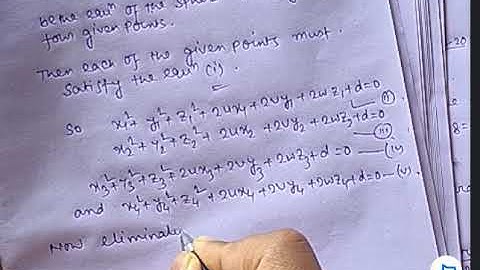 be the equⁿ of the
four given points.
Then each of the given points must
satisfy the equⁿ (i).
So x₁²+ y₁²+ z₁²+ 2ux₁+ 2vy₁+ 2wz₁+d=0 —(ii)
x₂²+ y₂²+ z₂²+ 2ux₂ + 2vy₂+ 2wz₂+d=0 —(iii)
x₃²+y₃²+z₃²+2ux₃+2vy₃+2wz₃+d=0 —(iv)
and x₄²+y₄²+z₄²+2ux₄+2vy₄+2wz₄+d=0 —(v).
Now eliminate